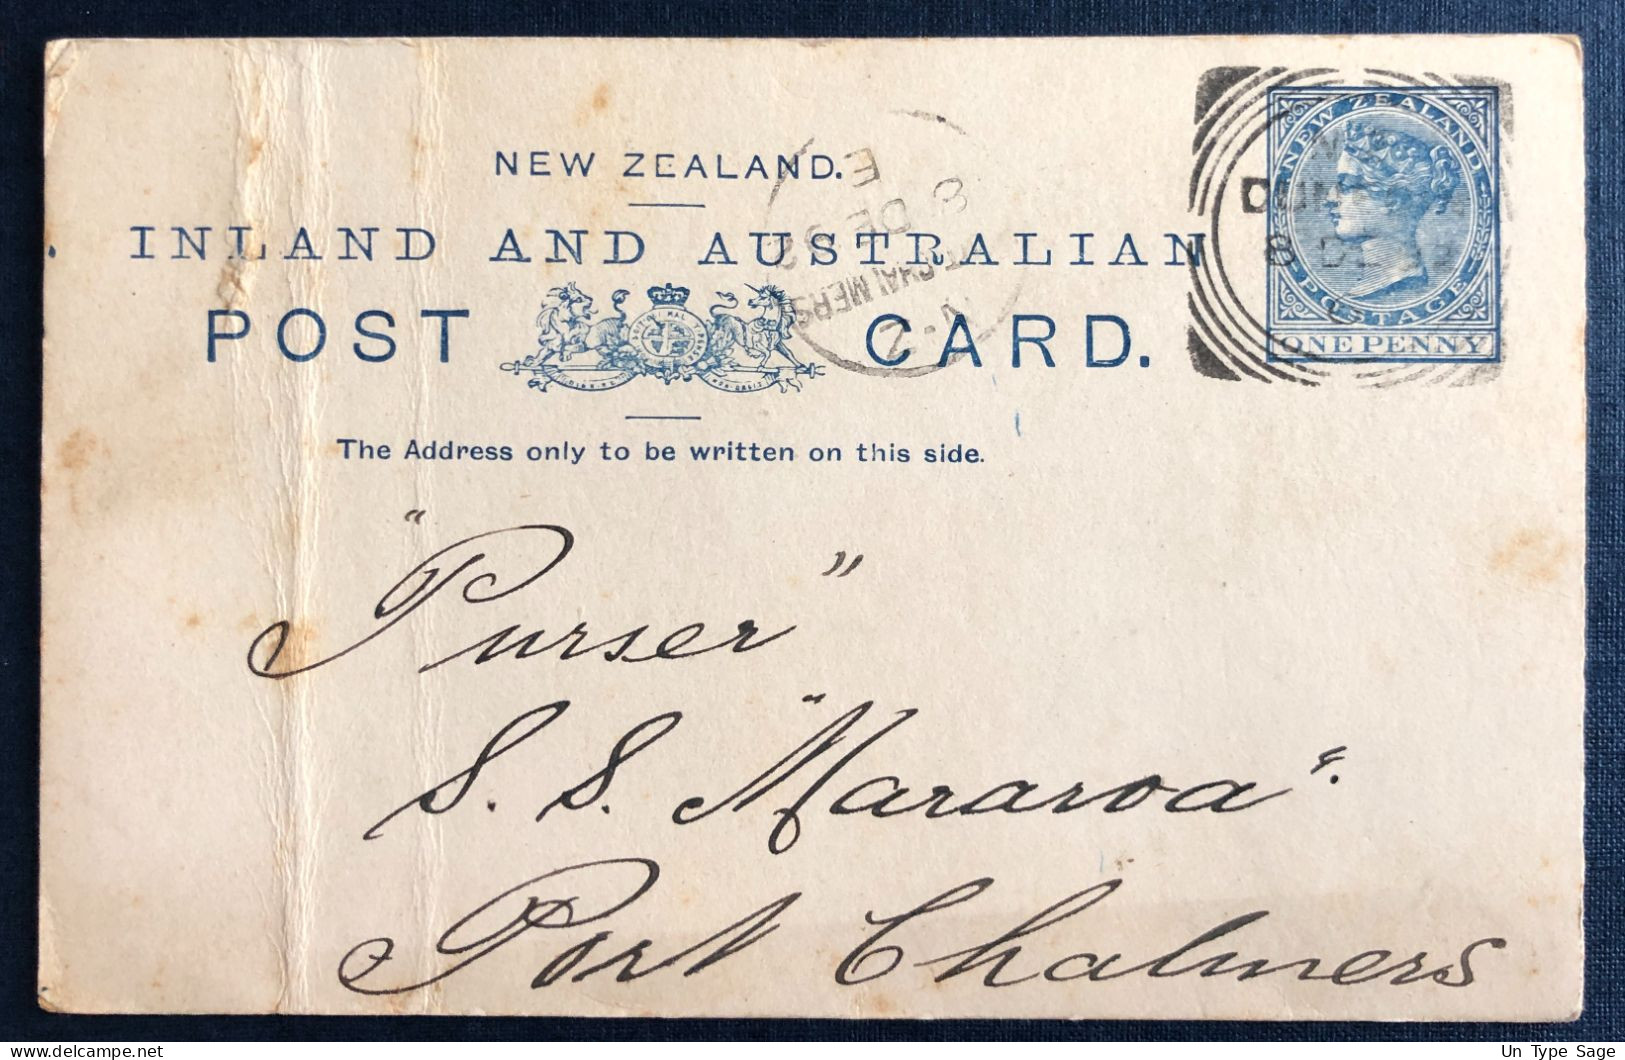 NEW ZEALAND.
INLAND AND AUSTRALIAN
POST CARD.
The Address only to be written on this side.
NEW ZEALAND
POSTAGE
ONE PENNY
E
8 DE 92
CHALMERS
N·Z
8
"Purser"
S. S. "Mararoa".
Port Chalmers
Un Type Sage
delcampe.net